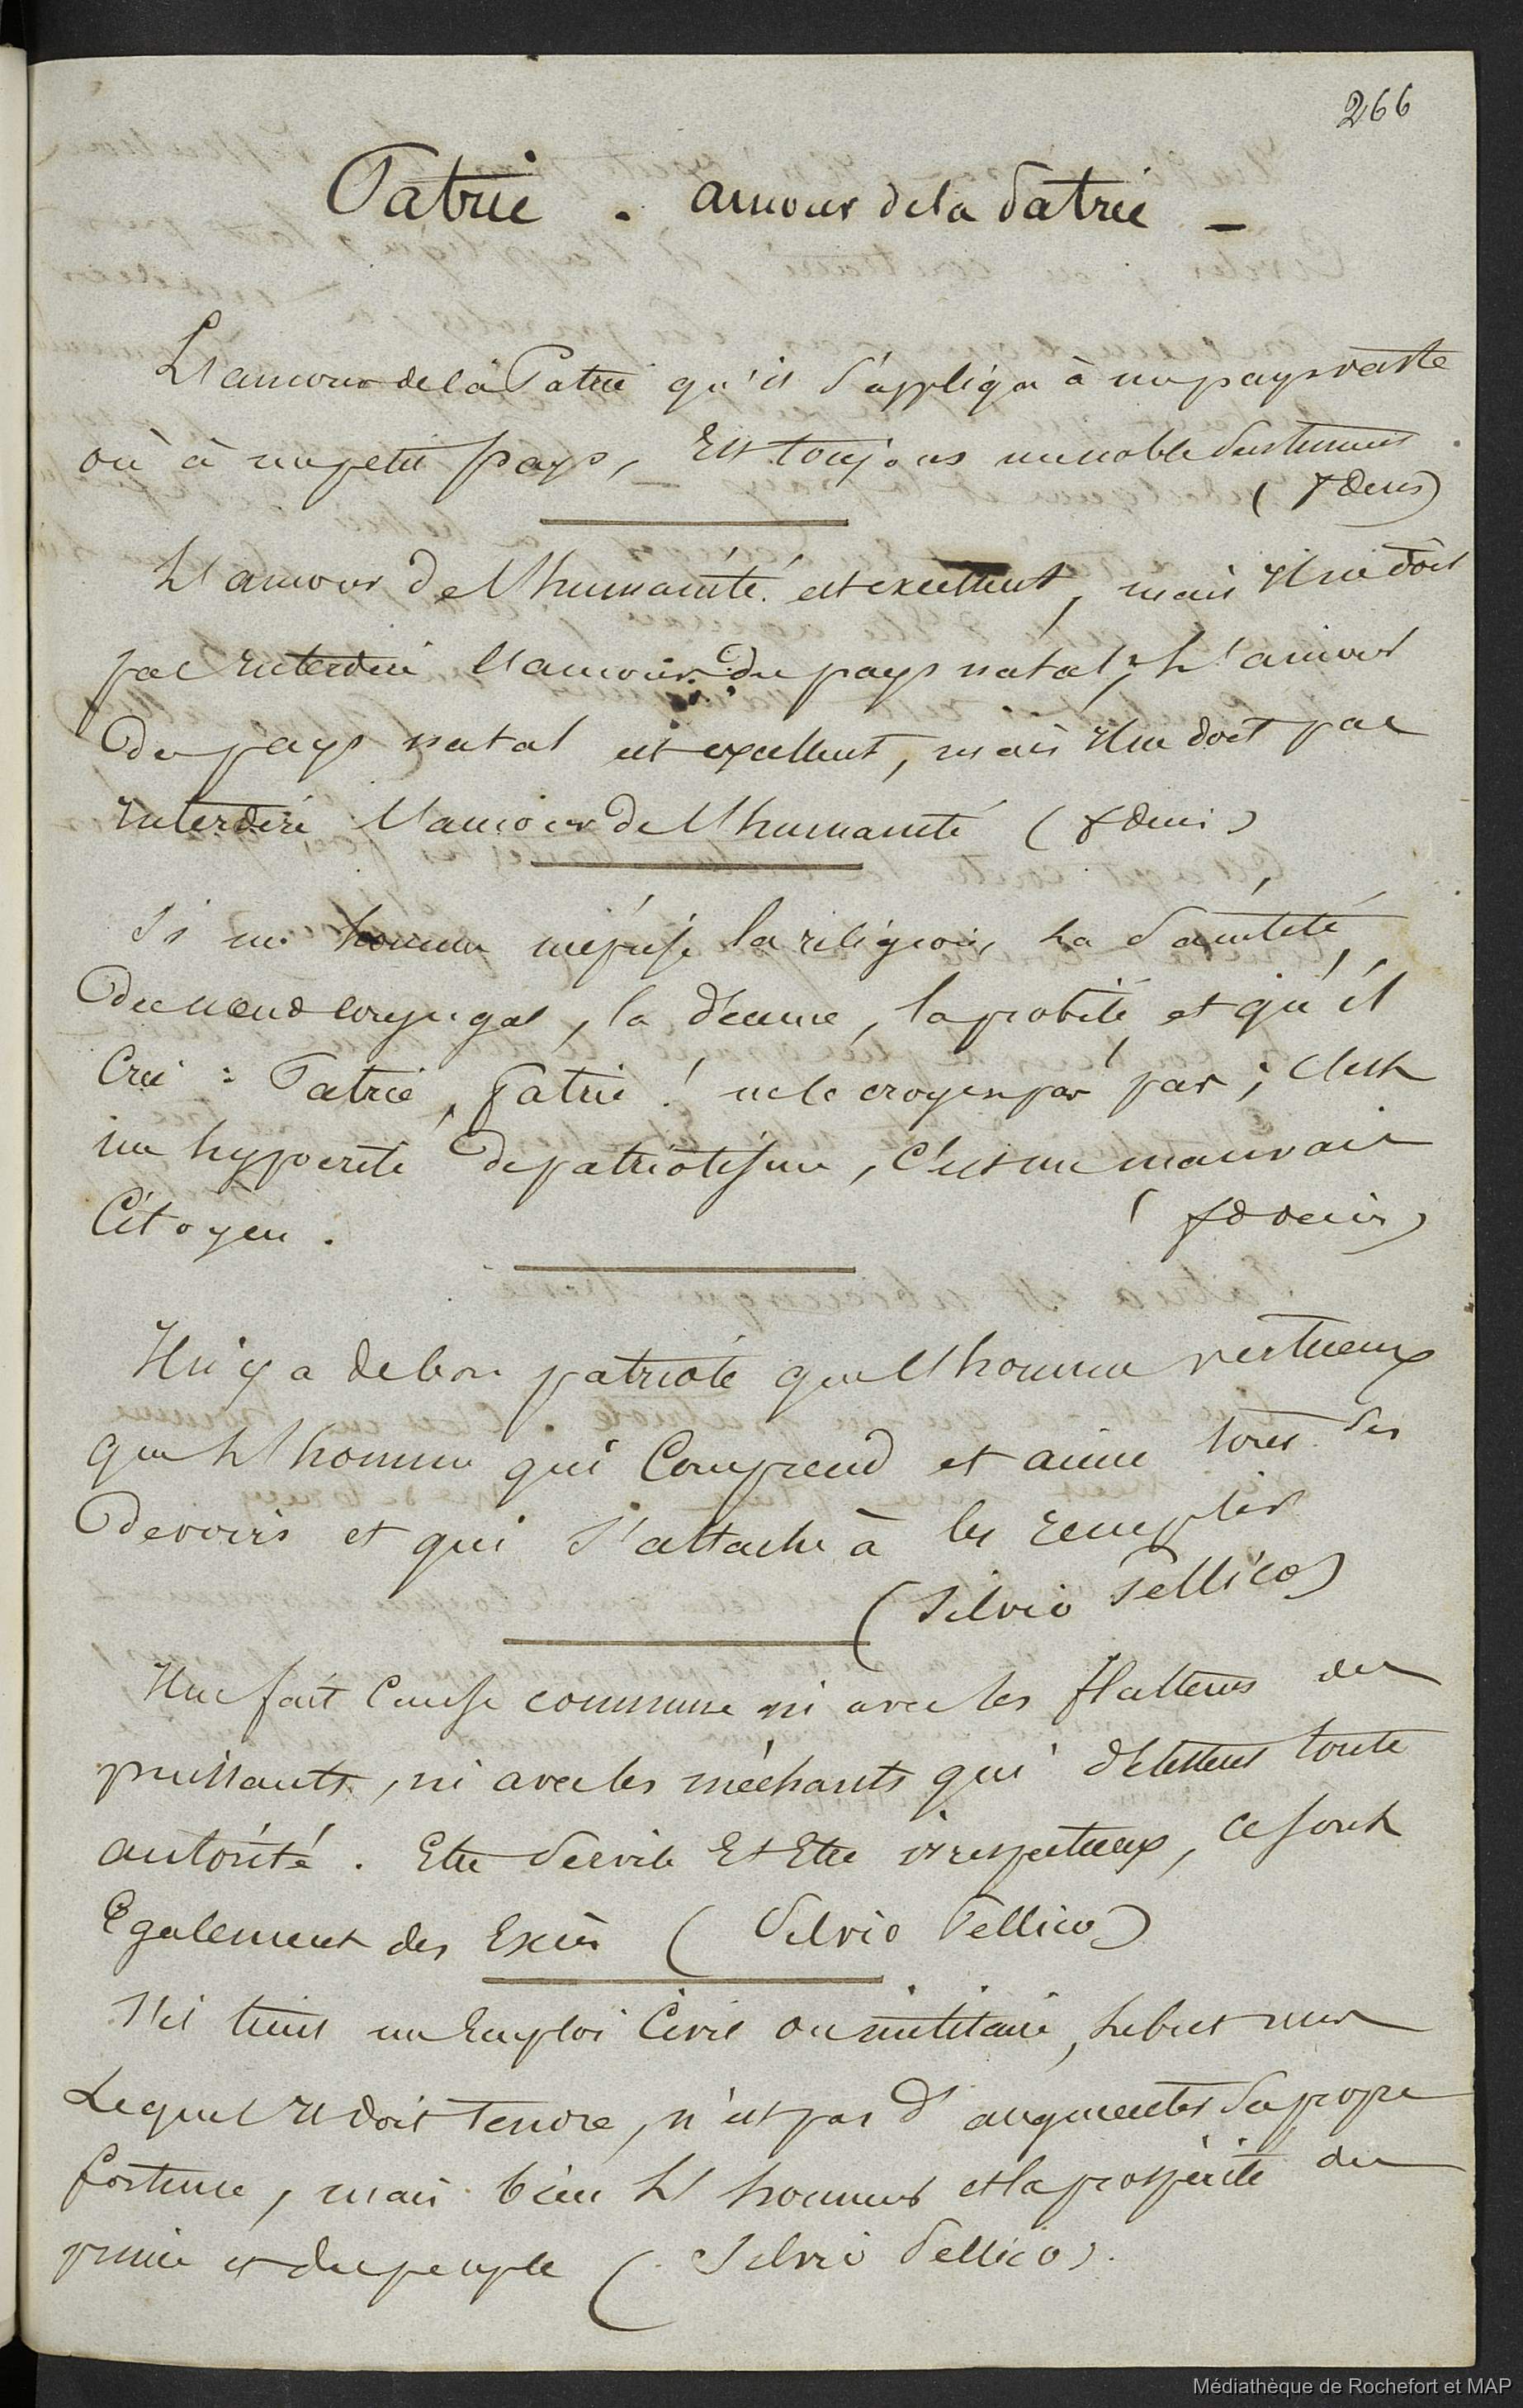 266
Patrie . amour de la Patrie -
L'amour de la Patrie qu'il s'applique à un pays vaste
où à un petit pays, est toujours un noble sentiment
L'amour de l'humanité est excellent, mais il ne doit
pas interdire l'amour du pays natal; L'amour
du pays natal est excellent, mais il ne doit pas
interdire l'amour de l'humanité
Si un homme méprise la religion, la sainteté
du nœud conjugal, la décence, la probité, et qu'il
crie : Patrie, Patrie ! ne le croyez pas pas ; c'est
un hypocrite de patriotisme, c'est un mauvais
Citoyen .
Il n'y a de bon patriote que l'homme vertueux
que l'homme qui Comprend et aime tous ses
devoirs et qui s'attache à les remplir
(Silvio Pellico)
Il ne fait cause commune ni avec les flatteurs des
puissants, ni avec les méchants qui détestent toute
autorité . Etre servile Et Etre irrespectueux, ce sont
Egalement des Excès (Silvio Pellico)
S'il tient un Emploi Civil ou militaire, le but vers
Lequel il doit tendre, n'est pas d'augmenter sa propre
fortune, mais bien l'honneur et la prospérité du
prince et du peuple (Silvio Pellico).
Médiathèque de Rochefort et MAP